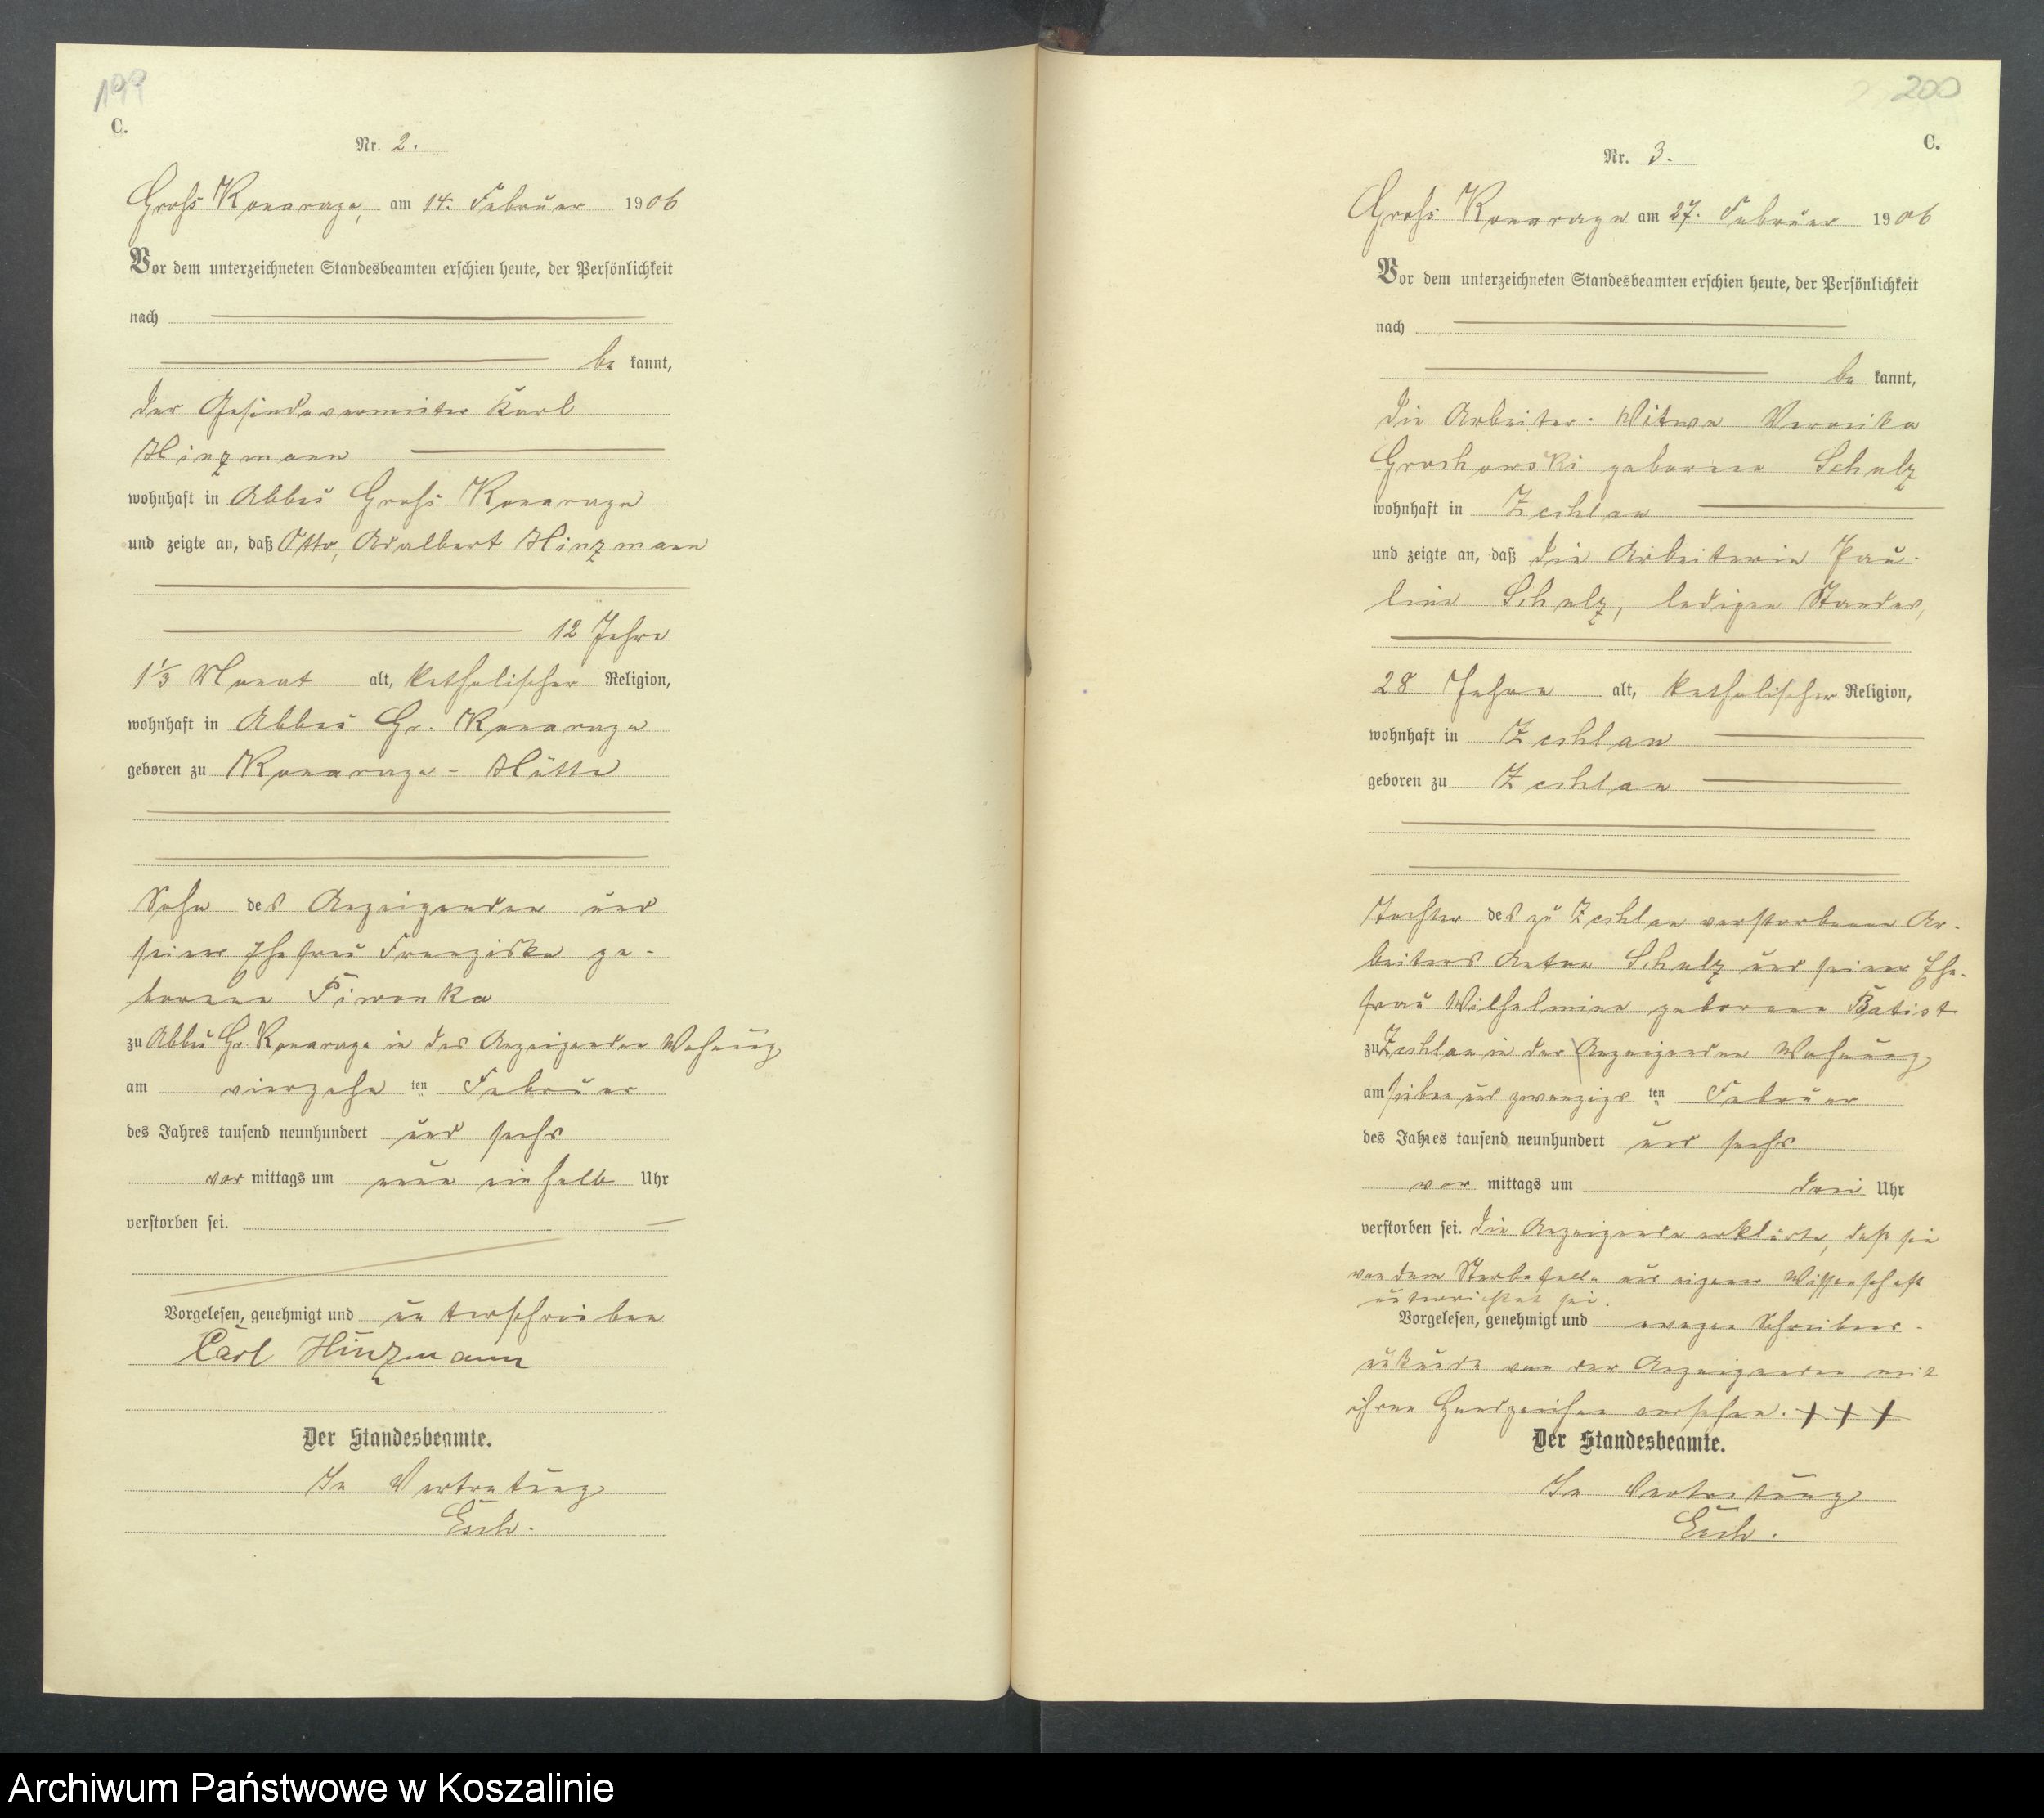 199
C.
Nr. 2.
Groß Konarzyn, am 14. Februar 1906
Vor dem unterzeichneten Standesbeamten erschien heute, der Persönlichkeit
nach
be kannt,
der Gesindevermieter Karl
Hinzmann
wohnhaft in Abbau Groß Konarzyn
und zeigte an, daß Otto, Adalbert Hinzmann
12 Jahre
1 1/3 Monat alt, katholischer Religion,
wohnhaft in Abbau Gr. Konarzyn
geboren zu Konarzyn-Hütte
Sohn des Anzeigenden und
seiner Ehefrau Franziska ge-
borenen Piwonka
zu Abbau Gr. Konarzyn in des Anzeigenden Wohnung
am vierzehn ten Februar
des Jahres tausend neunhundert und sechs
vor mittags um neun ein halb Uhr
verstorben sei.
Vorgelesen, genehmigt und unterschrieben
Carl Hinzmann
Der Standesbeamte.
In Vertretung
Esch.
200
C.
Nr. 3.
Groß Konarzyn am 27. Februar 1906
Vor dem unterzeichneten Standesbeamten erschien heute, der Persönlichkeit
nach
be kannt,
die Arbeiter-Witwe Veronika
Grochowski geborene Schulz
wohnhaft in Zechlau
und zeigte an, daß die Arbeiterin Pau-
line Schulz, ledigen Standes,
28 Jahre alt, katholischer Religion,
wohnhaft in Zechlau
geboren zu Zechlau
Tochter des zu Zechlau verstorbenen Ar-
beiters Anton Schulz und seiner Ehe-
frau Wilhelmine geborenen Batist
zu Zechlau in der Anzeigenden Wohnung
am sieben und zwanzigs ten Februar
des Jahres tausend neunhundert und sechs
vor mittags um drei Uhr
verstorben sei. Die Anzeigende erklärte, daß sie
von dem Sterbefalle aus eigener Wissenschaft
unterrichtet sei.
Vorgelesen, genehmigt und wegen Schreibens-
unkunde von der Anzeigenden mit
ihren Handzeichen versehen. +++
Der Standesbeamte.
In Vertretung
Esch.
Archiwum Państwowe w Koszalinie